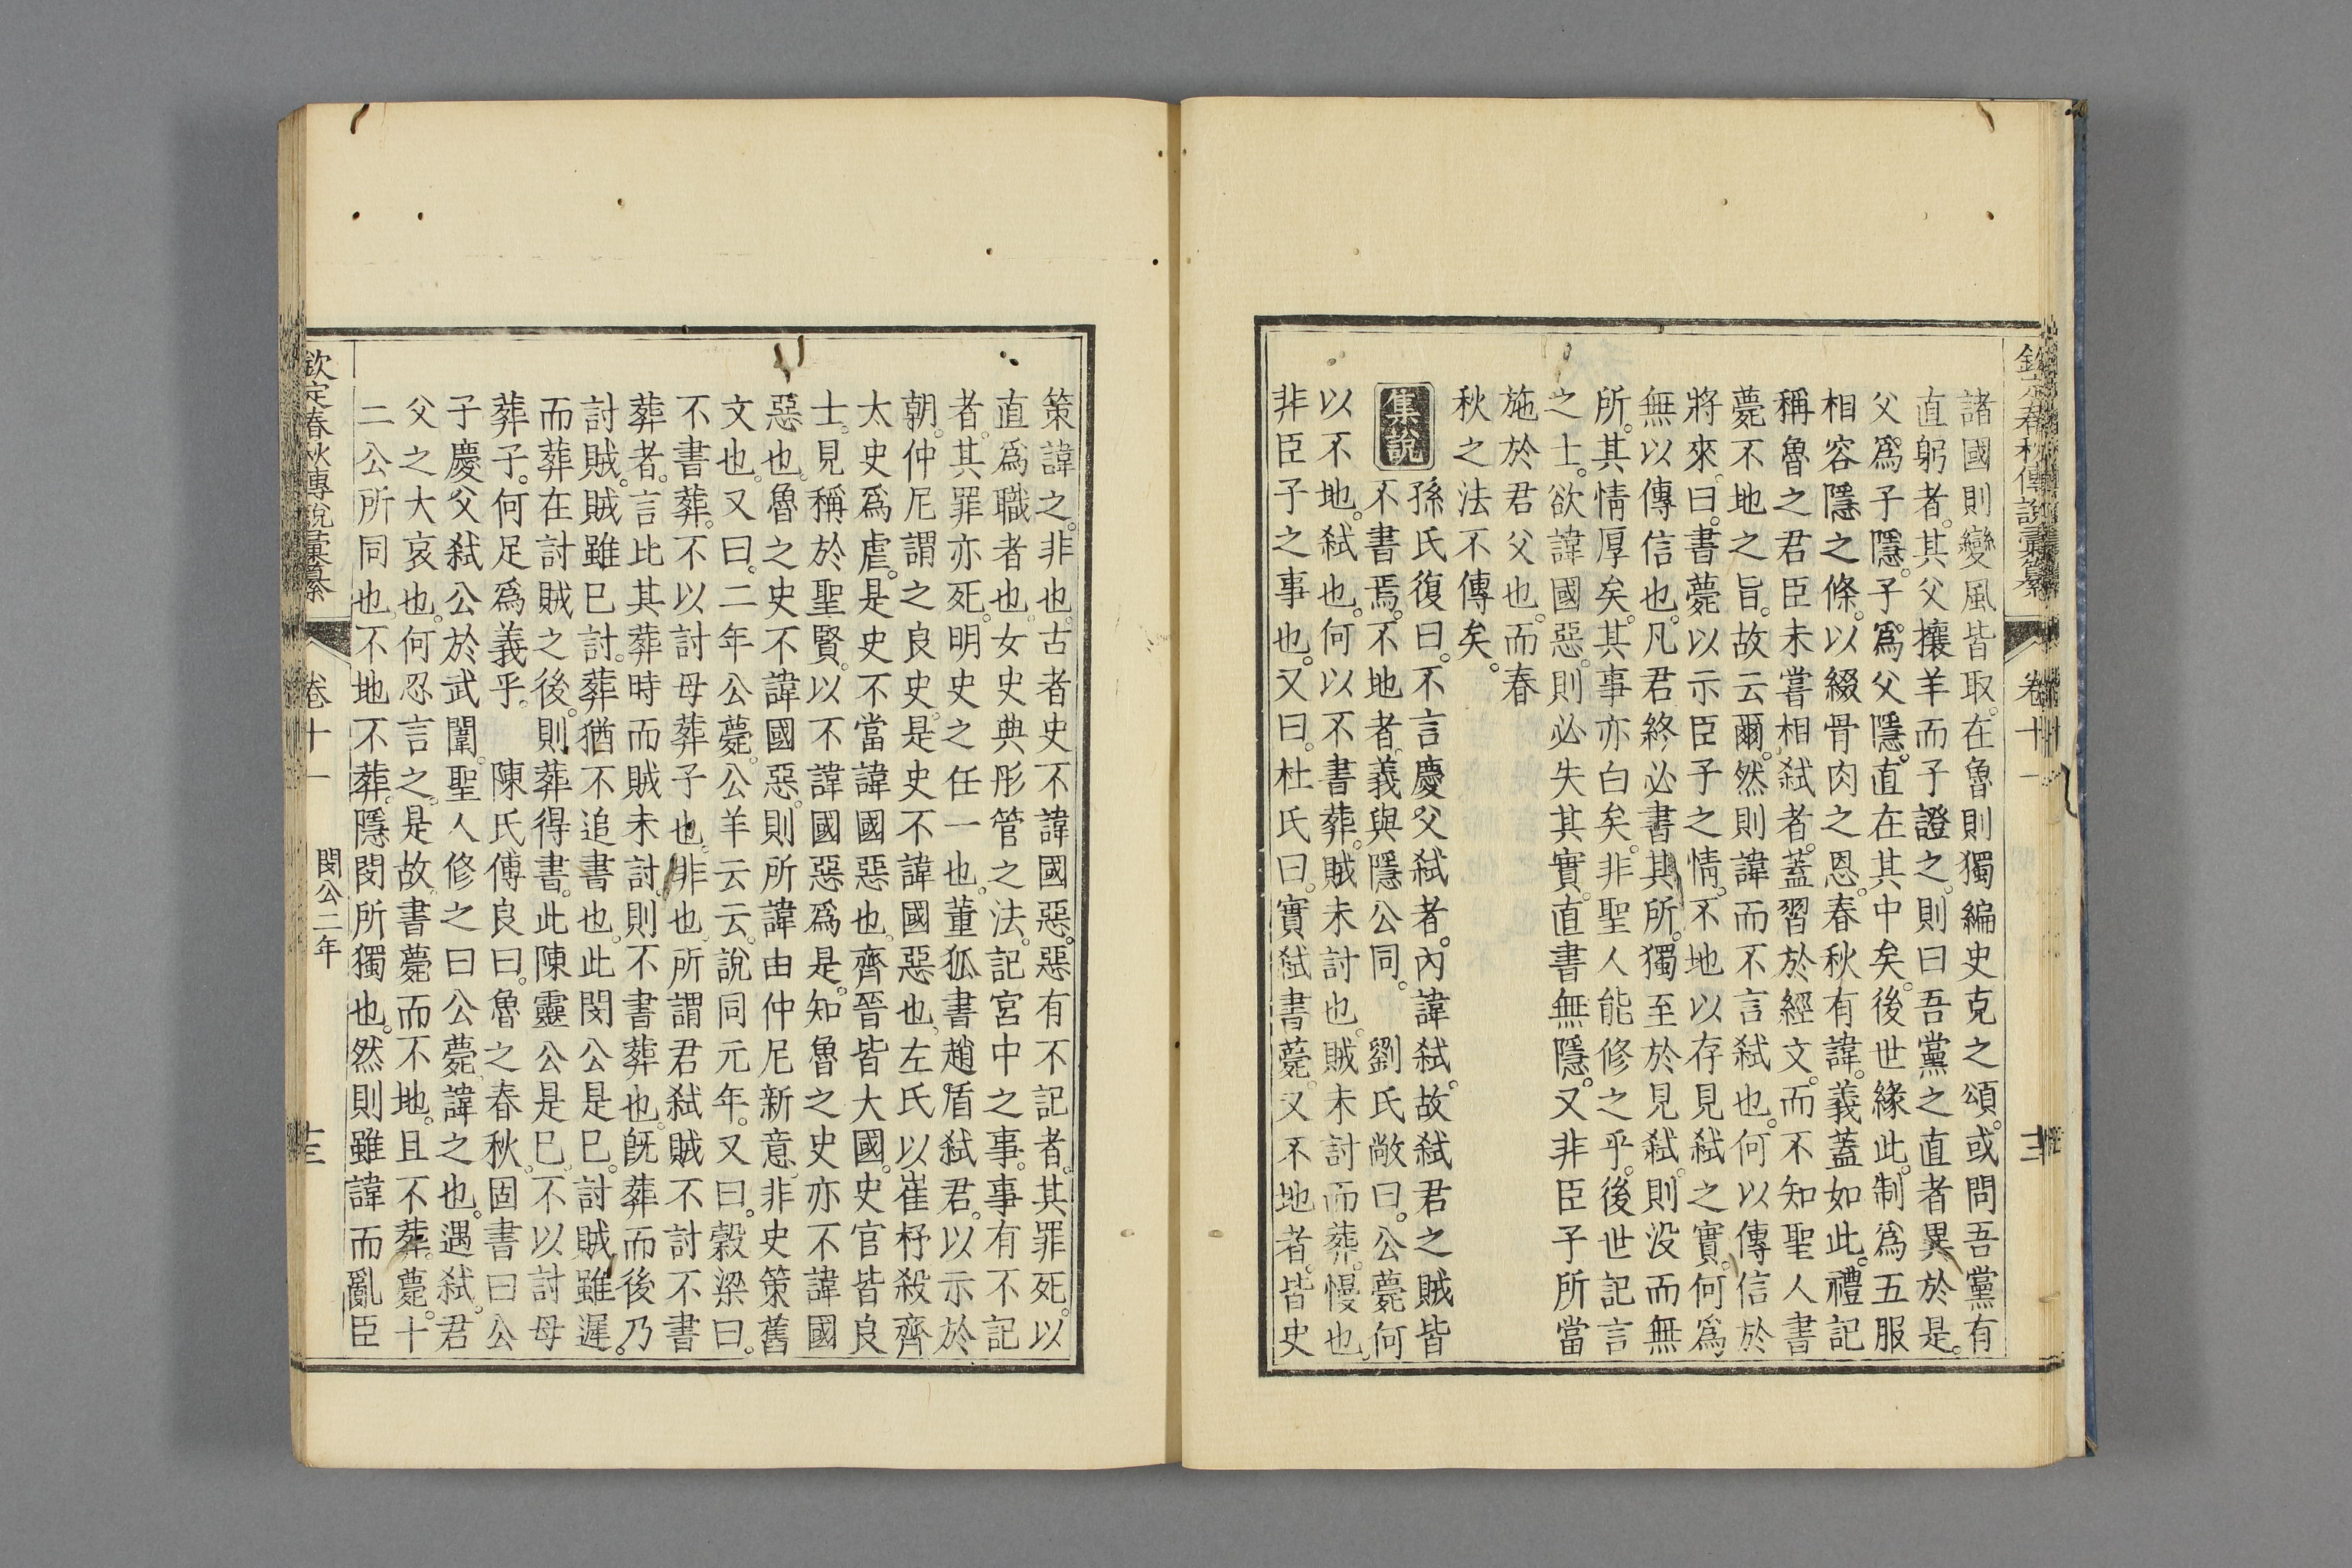 欽定春秋傳說彙纂 卷十一
諸國則變風皆取。在魯則獨編史克之頌。或問吾黨有
直躬者。其父攘羊而子證之。則曰吾黨之直者異於是。
父爲子隱。子爲父隱。直在其中矣。後世緣此。制爲五服
相容隱之條。以綴骨肉之恩。春秋有諱。義蓋如此。禮記
稱魯之君臣未嘗相弑者。蓋習於經文。而不知聖人書
薨不地之旨。故云爾。然則諱而不言弑也。何以傳信於
將來。曰。書薨以示臣子之情。不地以存見弑之實。何爲
無以傳信也。凡君終必書其所。獨至於見弑。則没而無
所。其情厚矣。其事亦白矣。非聖人能修之乎。後世記言
之士。欲諱國惡。則必失其實。直書無隱。又非臣子所當
施於君父也。而春
秋之法不傳矣。
集說 孫氏復曰。不言慶父弑者。內諱弑。故弑君之賊皆
不書焉。不地者。義與隱公同。 劉氏敞曰。公薨何
以不地。弑也。何以不書葬。賊未討也。賊未討而葬。慢也。
非臣子之事也。又曰。杜氏曰。實弑書薨。又不地者。皆史
策諱之。非也。古者史不諱國惡。惡有不記者。其罪死。以
直爲職者也。女史典彤管之法。記宮中之事。事有不記
者。其罪亦死。明史之任一也。董狐書趙盾弑君。以示於
朝。仲尼謂之良史。是史不諱國惡也。左氏以崔杼殺齊
太史爲虐。是史不當諱國惡也。齊晉皆大國。史官皆良
士。見稱於聖賢。以不諱國惡爲是。知魯之史亦不諱國
惡也。魯之史不諱國惡。則所諱由仲尼新意。非史策舊
文也。又曰。二年公薨。公羊云云。說同元年。又曰。榖梁曰。
不書葬。不以討母葬子也。非也。所謂君弑賊不討不書
葬者。言比其葬時而賊未討。則不書葬也。旣葬而後乃
討賊。賊雖已討。葬猶不追書也。此閔公是已。討賊雖遲。
而葬在討賊之後。則葬得書。此陳靈公是已。不以討母
葬子。何足爲義乎。 陳氏傅良曰。魯之春秋。固書曰公
子慶父弑公於武闈。聖人修之曰公薨。諱之也。遇弑。君
父之大哀也。何忍言之。是故書薨而不地。且不葬。薨。十
二公所同也。不地不葬。隱閔所獨也。然則雖諱而亂臣
欽定春秋傳說彙纂 卷十一 閔公二年 十三